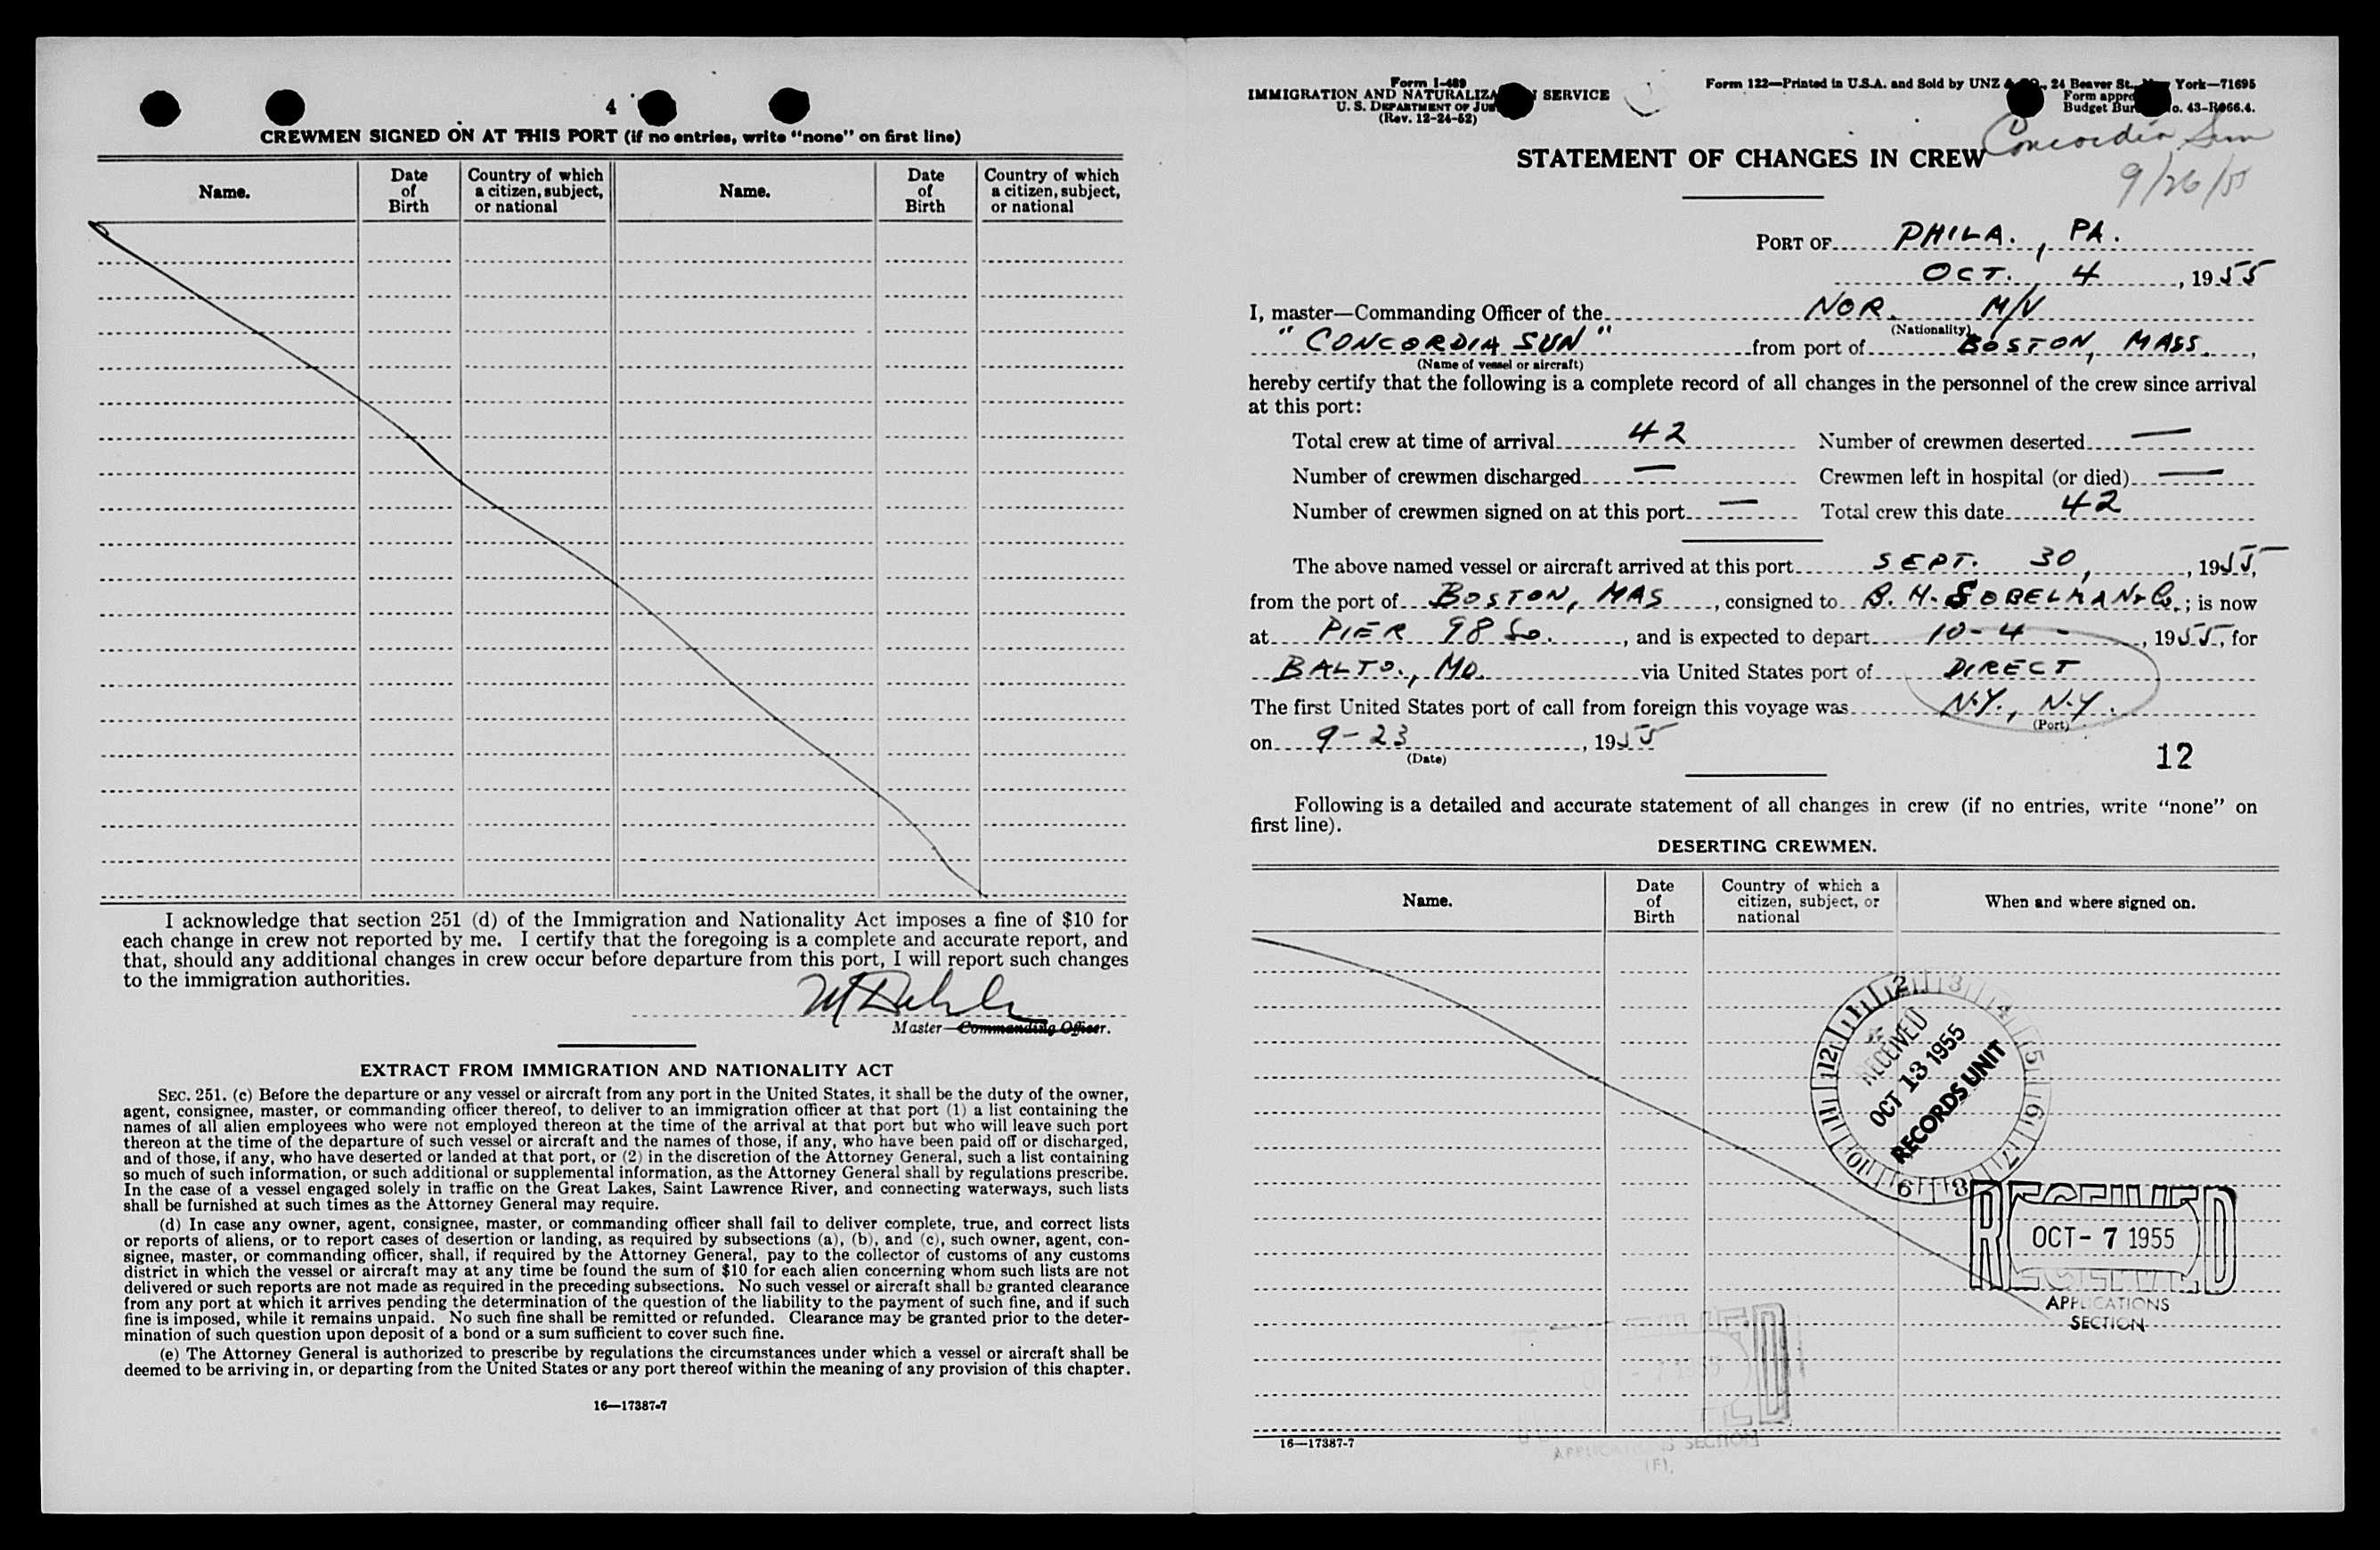 4
CREWMEN SIGNED ON AT THIS PORT (if no entries, write "none" on first line)
Name. Date of Birth Country of which a citizen, subject, or national Name. Date of Birth Country of which a citizen, subject, or national
I acknowledge that section 251 (d) of the Immigration and Nationality Act imposes a fine of $10 for
each change in crew not reported by me. I certify that the foregoing is a complete and accurate report, and
that, should any additional changes in crew occur before departure from this port, I will report such changes
to the immigration authorities.
Master—Commanding Officer.
EXTRACT FROM IMMIGRATION AND NATIONALITY ACT
SEC. 251. (c) Before the departure or any vessel or aircraft from any port in the United States, it shall be the duty of the owner,
agent, consignee, master, or commanding officer thereof, to deliver to an immigration officer at that port (1) a list containing the
names of all alien employees who were not employed thereon at the time of the arrival at that port but who will leave such port
thereon at the time of the departure of such vessel or aircraft and the names of those, if any, who have been paid off or discharged,
and of those, if any, who have deserted or landed at that port, or (2) in the discretion of the Attorney General, such a list containing
so much of such information, or such additional or supplemental information, as the Attorney General shall by regulations prescribe.
In the case of a vessel engaged solely in traffic on the Great Lakes, Saint Lawrence River, and connecting waterways, such lists
shall be furnished at such times as the Attorney General may require.
(d) In case any owner, agent, consignee, master, or commanding officer shall fail to deliver complete, true, and correct lists
or reports of aliens, or to report cases of desertion or landing, as required by subsections (a), (b), and (c), such owner, agent, con-
signee, master, or commanding officer, shall, if required by the Attorney General, pay to the collector of customs of any customs
district in which the vessel or aircraft may at any time be found the sum of $10 for each alien concerning whom such lists are not
delivered or such reports are not made as required in the preceding subsections. No such vessel or aircraft shall be granted clearance
from any port at which it arrives pending the determination of the question of the liability to the payment of such fine, and if such
fine is imposed, while it remains unpaid. No such fine shall be remitted or refunded. Clearance may be granted prior to the deter-
mination of such question upon deposit of a bond or a sum sufficient to cover such fine.
(e) The Attorney General is authorized to prescribe by regulations the circumstances under which a vessel or aircraft shall be
deemed to be arriving in, or departing from the United States or any port thereof within the meaning of any provision of this chapter.
16—17387-7
Form I-489
IMMIGRATION AND NATURALIZA SERVICE
U. S. DEPARTMENT OF JUS
(Rev. 12-24-52)
Form 122—Printed in U.S.A. and Sold by UNZ & CO., 24 Beaver St., York—71695
Form appro
Budget Bur o. 43-R066.4.
Concordia Sun
9/26/55
STATEMENT OF CHANGES IN CREW
PORT OF PHILA., PA.
OCT. 4, 1955
I, master—Commanding Officer of the NOR. M/V
(Nationality)
"CONCORDIA SUN" from port of BOSTON, MASS.,
(Name of vessel or aircraft)
hereby certify that the following is a complete record of all changes in the personnel of the crew since arrival
at this port:
Total crew at time of arrival 42 Number of crewmen deserted —
Number of crewmen discharged — Crewmen left in hospital (or died) —
Number of crewmen signed on at this port — Total crew this date 42
The above named vessel or aircraft arrived at this port SEPT. 30, 1955,
from the port of BOSTON, MAS, consigned to B. H. SOBELMAN & Co.; is now
at PIER 98 So., and is expected to depart 10-4-, 1955, for
BALTO., MD. via United States port of DIRECT
The first United States port of call from foreign this voyage was N.Y., N.Y.
(Port)
on 9-23, 1955
(Date)
12
Following is a detailed and accurate statement of all changes in crew (if no entries, write "none" on
first line).
DESERTING CREWMEN.
Name. Date of Birth Country of which a citizen, subject, or national When and where signed on.
1 2 3 4 5 6 7 8 9 10 11 12
RECEIVED
OCT 13 1955
RECORDS UNIT
RECEIVED
OCT - 7 1955
RECEIVED
APPLICATIONS
SECTION
16—17387-7